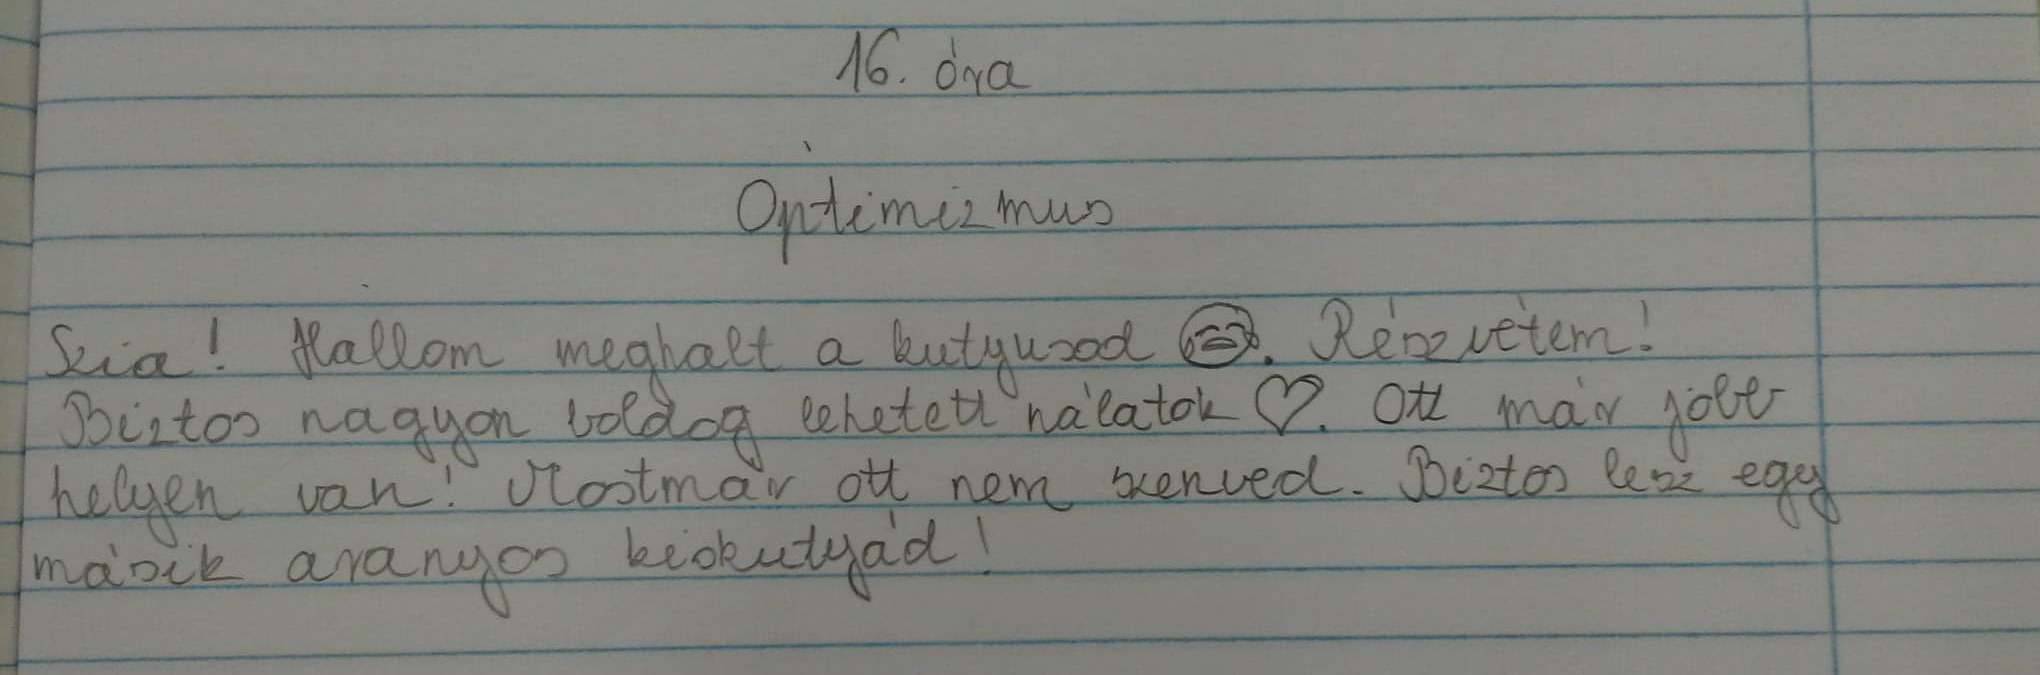 16. óra
Optimizmus
Szia! Hallom meghalt a kutyusod 😞. Részvétem!
Biztos nagyon boldog lehetett nálatok ♡. Ott már jobb
helyen van! Mostmár ott nem szenved. Biztos lesz egy
másik aranyos kiskutyád!